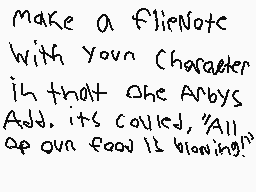 Make a flieNote
With Your Character
in that one Arbys
Add. its called, "All
op our food is blowing!"